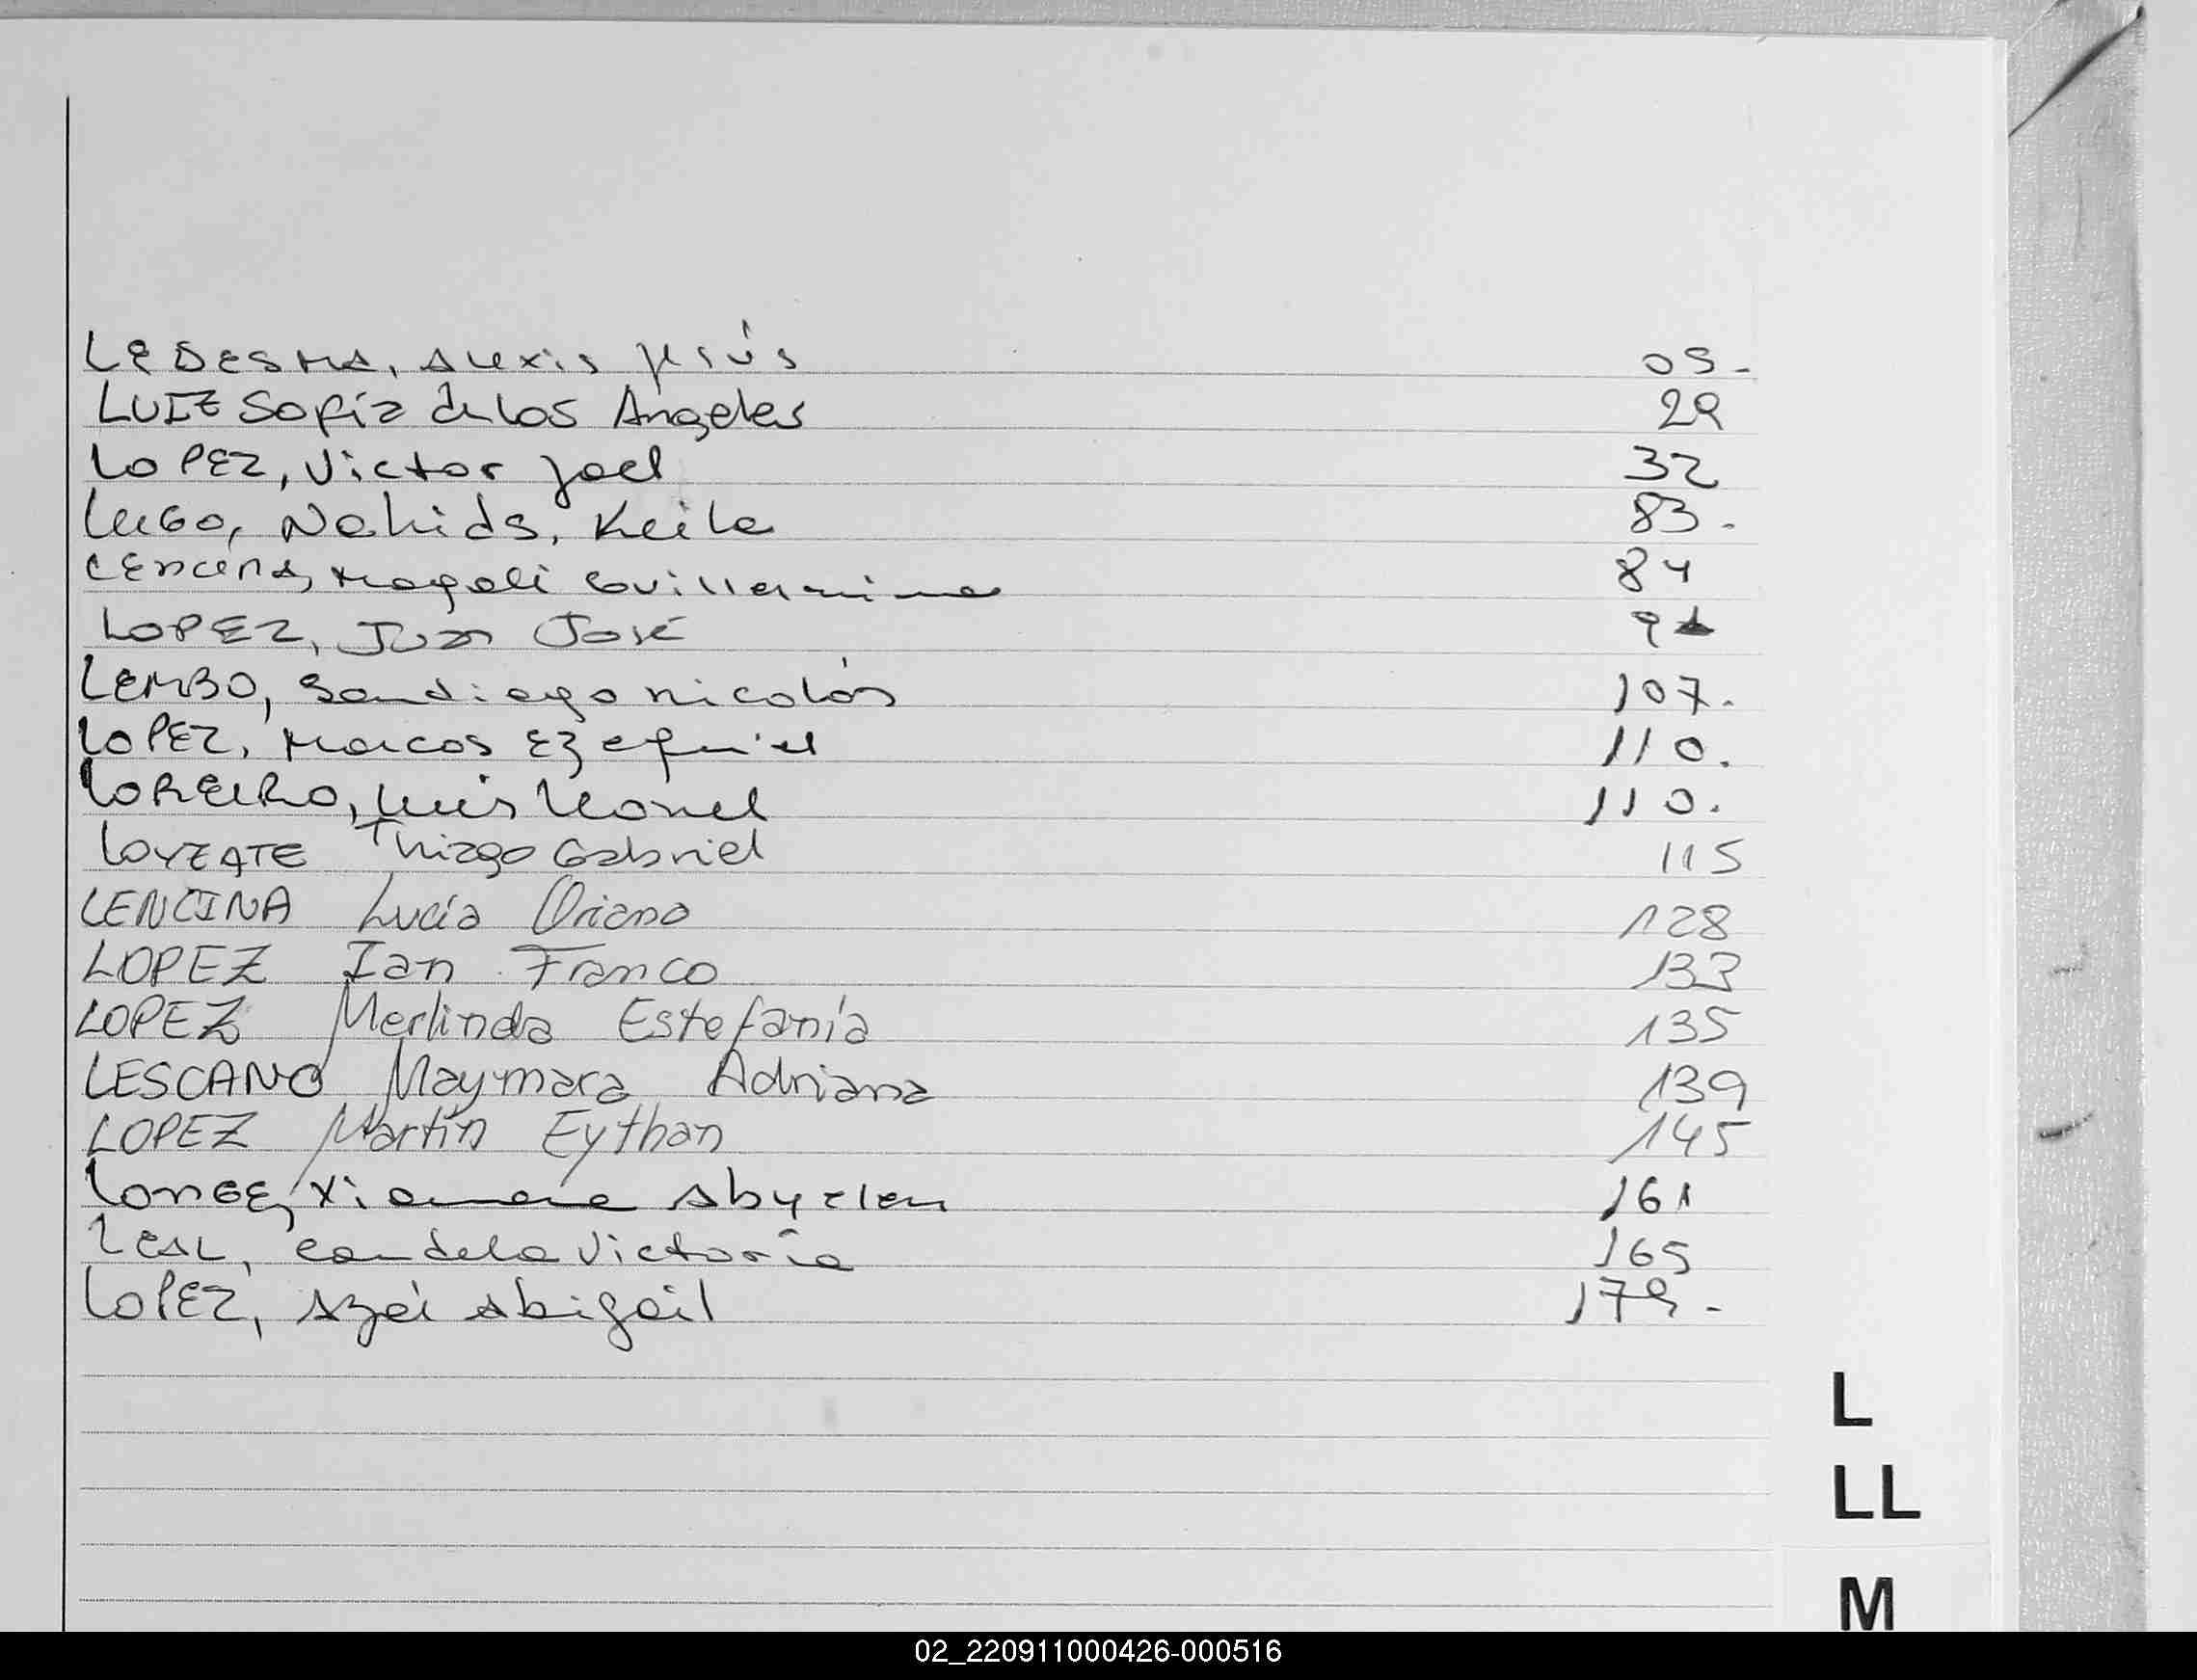 LEDESMA, Alexis Jesús 09.-
LUIZ Sofia de los Angeles 29
LOPEZ, Victor Joel 32
LUGO, Nahids, Keila 83.
LENCINA, Magali Guillermina 84
LOPEZ, Juan José
LEMBO, Santiago Nicolás 107.
LOPEZ, Marcos Ezequiel 110.
LOREIRO, Luis Leonel 110.
LOYZATE Thiago Gabriel 115
LENCINA Lucía Oriana 128
LOPEZ Ian Franco 133
LOPEZ Merlinda Estefanía 135
LESCANO Maymara Adriana 139
LOPEZ Martín Eythan 145
LONGE, Xiomara Abyelen 161
LEAL, Candela Victoria 165
LOPEZ, Azei Abigail 179.-
L
LL
M
02_220911000426-000516